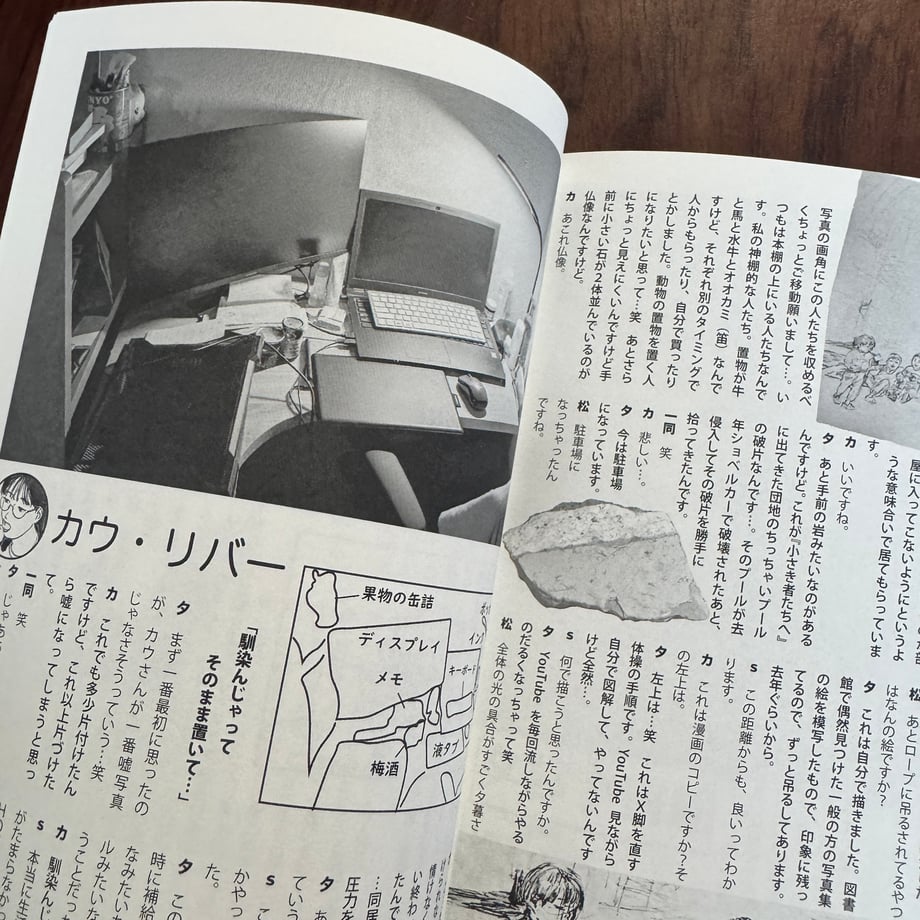 写真の画角にこの人たちを収めるべ
くちょっとご移動願いまして…。い
つもは本棚の上にいる人たちなんで
す。私の神棚的な人たち。置物が牛
と馬と水牛とオオカミ（笛）なんで
すけど、それぞれ別のタイミングで
人からもらったり、自分で買ったり
とかしました。動物の置物を置く人
になりたいと思って…笑　あとさら
にちょっと見えにくいんですけど手
前に小さい石が2体並んでいるのが
仏像なんですけど。
カ　あこれ仏像。
屋に入ってこないようにというよ
うな意味合いで居てもらっていま
す。
カ　いいですね。
タ　あと手前の岩みたいなのがある
んですけど。これが『小さき者たちへ』
に出てきた団地のちっちゃいプール
の破片なんです…。そのプールが去
年ショベルカーで破壊されたあと、
侵入してその破片を勝手に
拾ってきたんです。
一同　笑
カ　悲しい…。
タ　今は駐車場
になっています。
松　駐車場に
なっちゃったん
ですね。
松　あとロープに吊るされてるやつ
はなんの絵ですか？
タ　これは自分で描きました。図書
館で偶然見つけた一般の方の写真集
の絵を模写したもので、印象に残っ
てるので、ずっと吊るしてあります。
去年ぐらいから。
s　この距離からも、良いってわか
ります。
カ　これは漫画のコピーですか？そ
の左上は。
タ　左上は…笑　これはX脚を直す
体操の手順です。YouTube 見ながら
自分で図解して、やってないんです
けど全然…。
s　何で描こうと思ったんですか。
タ　YouTube を毎回流しながらやる
のだるくなっちゃって 笑
松　全体の光の具合がすごく夕暮さ
カウ・リバー
果物の缶詰
ディスプレイ
メモ
キーボード
液タブ
梅酒
「馴染んじゃって
そのまま置いて…」
タ　まず一番最初に思ったの
が、カウさんが一番嘘写真
じゃなさそうっていう…笑
カ　これでも多少片付けたん
ですけど、これ以上片づけた
ら嘘になってしまうと思っ
て。
一同　笑
タ　じゃあ